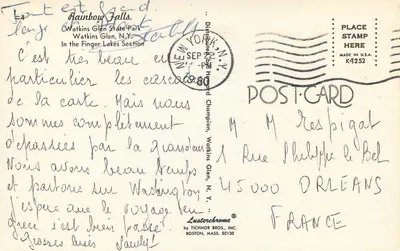 Tout est grand
E-4 Rainbow Falls
Watkins Glen State Park
Watkins Glen, N.Y.
In the Finger Lakes Section
C'est très beau en
particulier les cascades
de la carte. Mais nous
sommes complètement
dépassées par la grandeur
Nous avons beau temps
et partons sur Washington
J'espère que le voyage en
Grèce s'est bien passé.
Grosses bises
Distributed by Howard Champion, Watkins Glen, N. Y.
Lusterchrome
by TICHNOR BROS., INC.
BOSTON, MASS. 02130
NEW YORK, N.Y.
SEP
PM
1980
PLACE
STAMP
HERE
MADE IN U.S.A.
K-9252
POST CARD
M. M Respigat
1 Rue Philippe le Bel
45000 ORLEANS
FRANCE